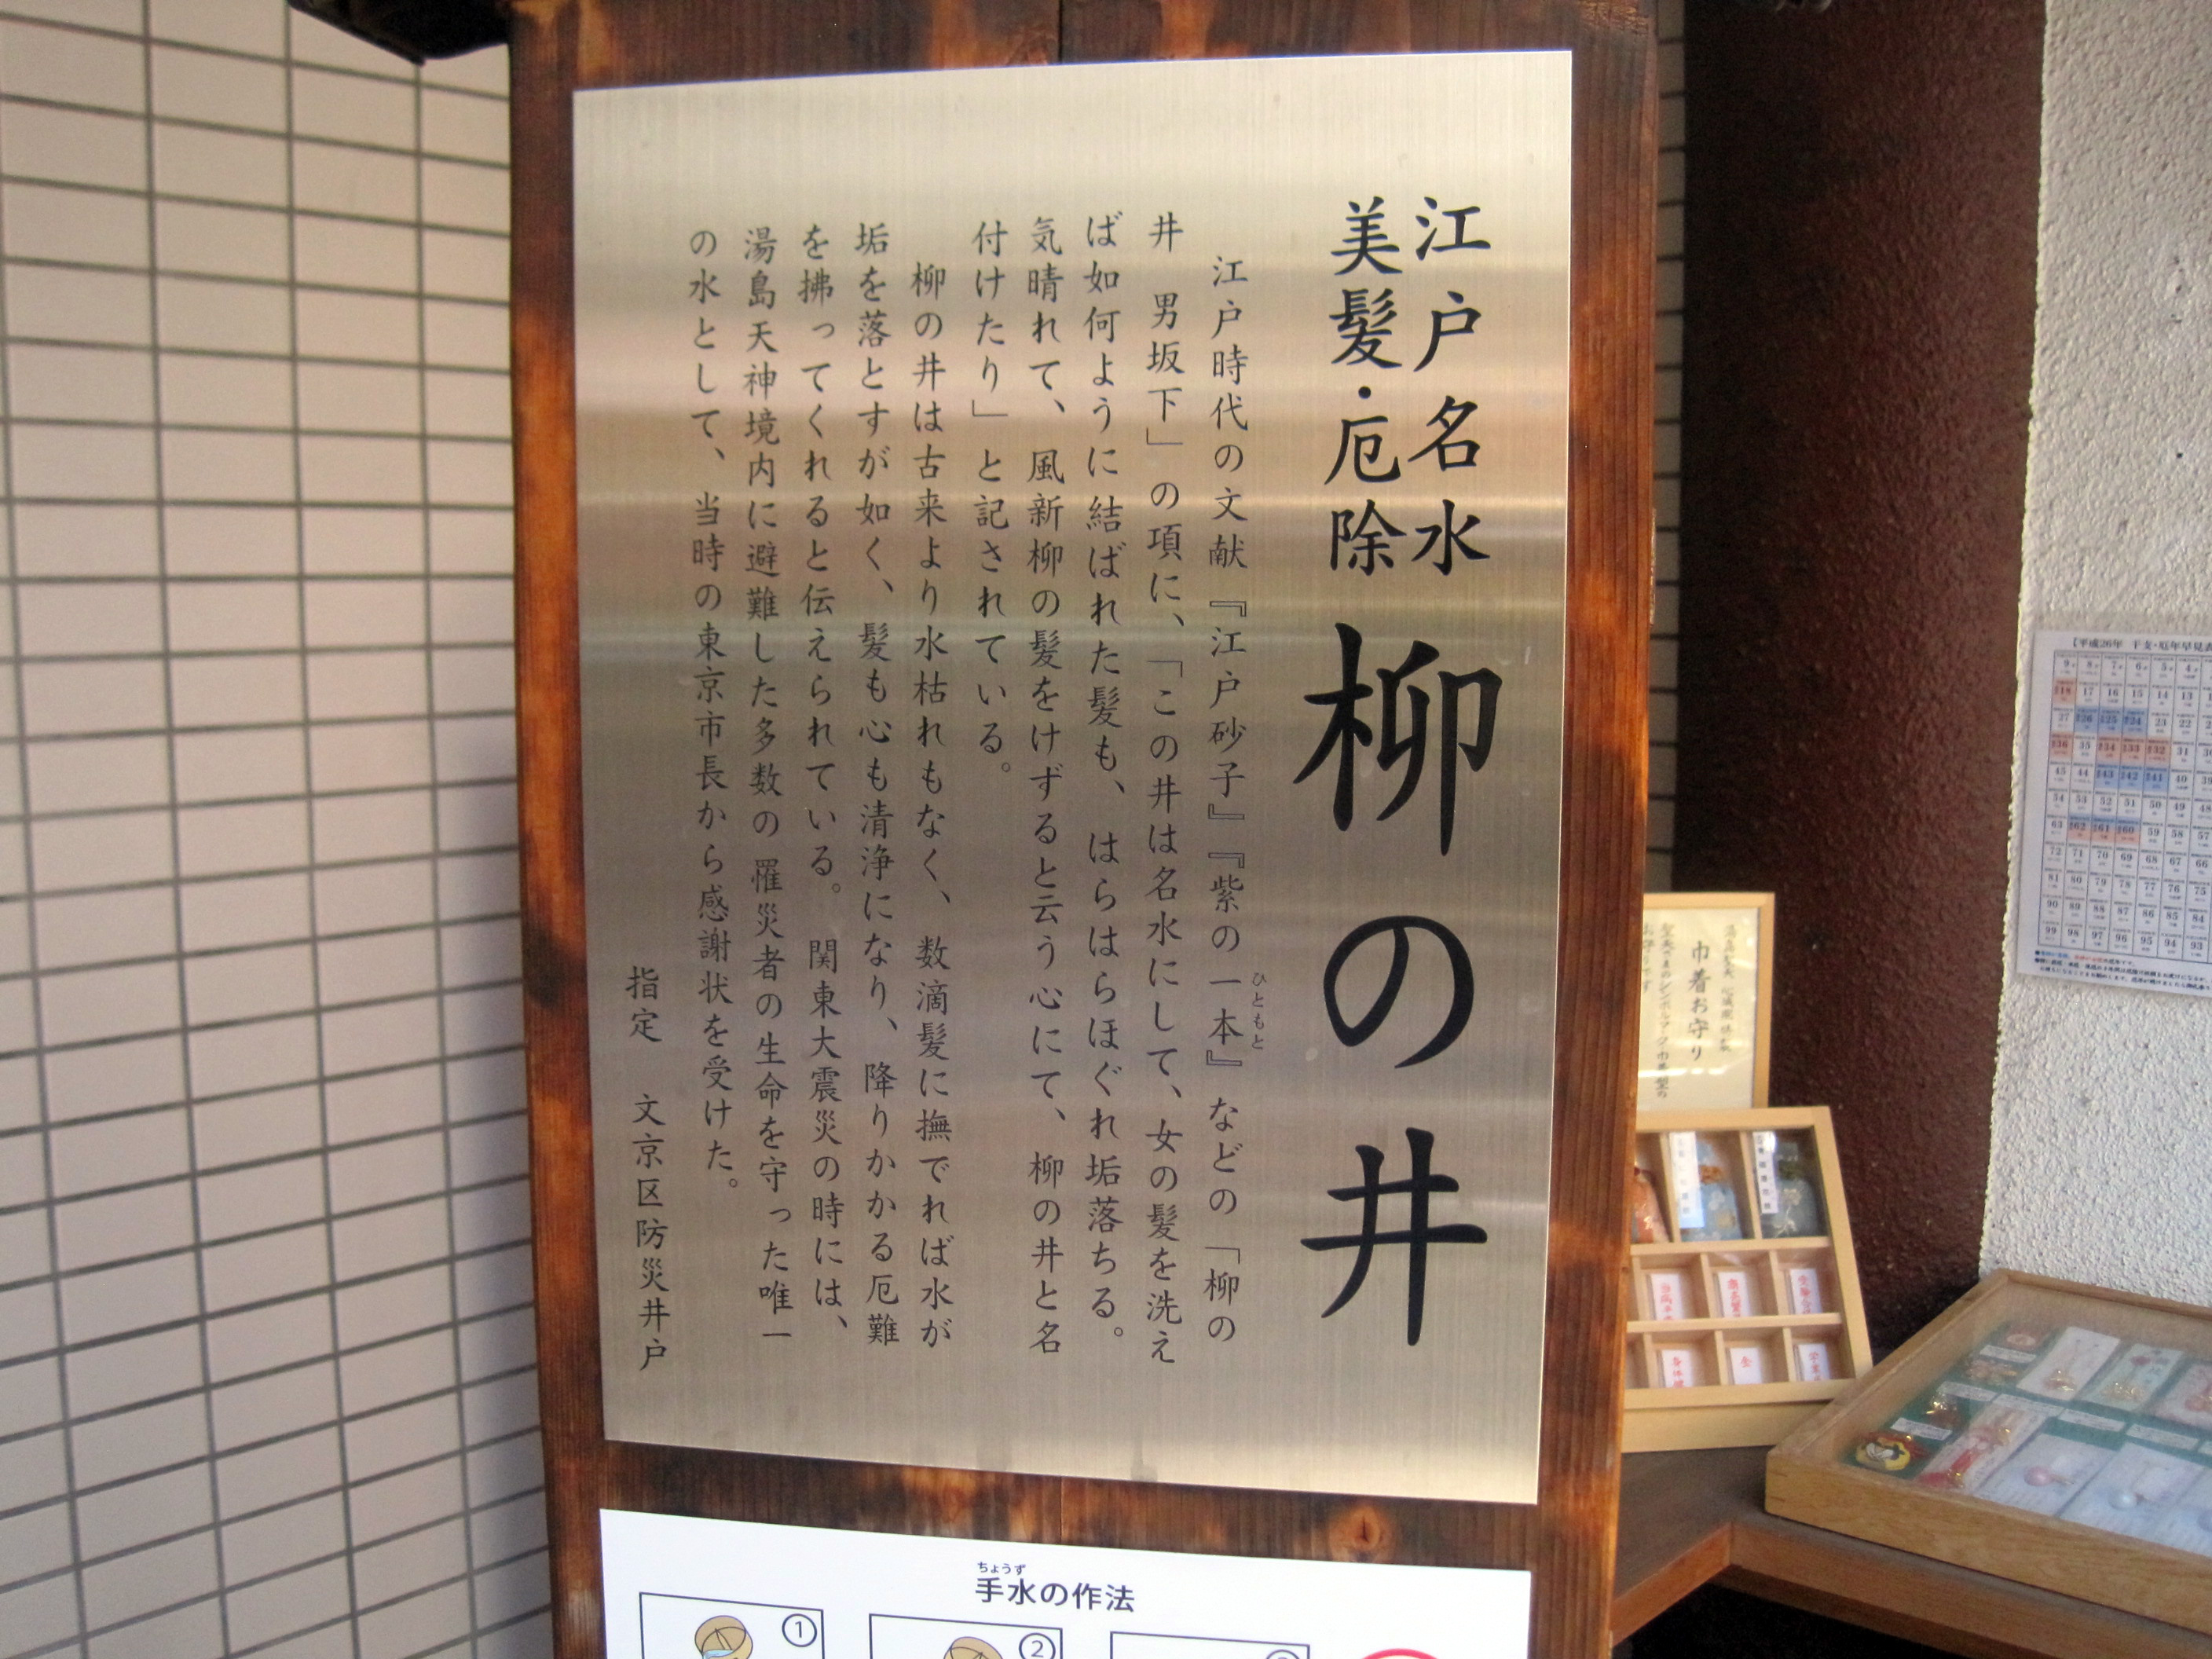 江戸名水
美髪・厄除
柳の井
江戸時代の文献『江戸砂子』『紫の一本』などの「柳の
ひともと
井　男坂下」の項に、「この井は名水にして、女の髪を洗え
ば如何ように結ばれた髪も、はらはらほぐれ垢落ちる。
気晴れて、風新柳の髪をけずると云う心にて、柳の井と名
付けたり」と記されている。
柳の井は古来より水枯れもなく、数滴髪に撫でれば水が
垢を落とすが如く、髪も心も清浄になり、降りかかる厄難
を拂ってくれると伝えられている。関東大震災の時には、
湯島天神境内に避難した多数の罹災者の生命を守った唯一
の水として、当時の東京市長から感謝状を受けた。
指定　文京区防災井戸
ちょうず
手水の作法
①
②
巾着お守り
【平成26年　干支・厄年早見表